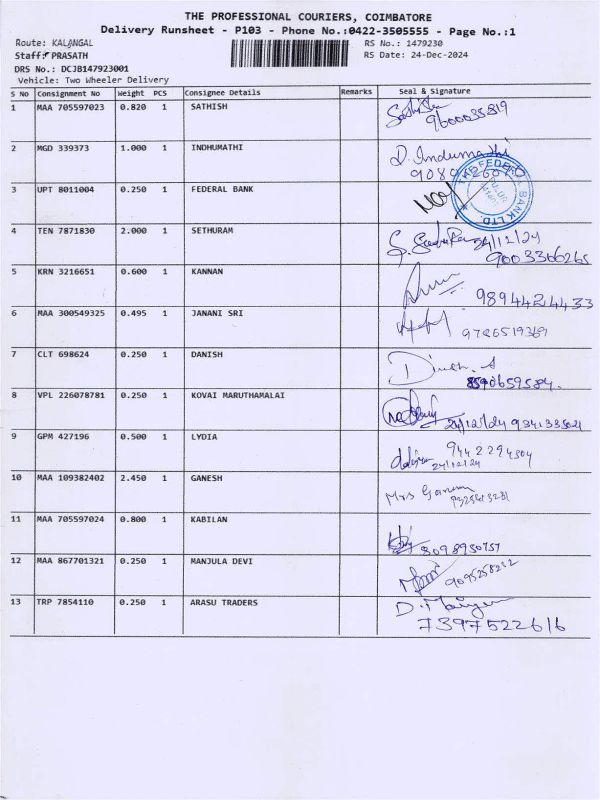 THE PROFESSIONAL COURIERS, COIMBATORE
Delivery Runsheet - P103 - Phone No.:0422-3505555 - Page No.:1
Route: KALANGAL
RS No.: 1479230
Staff: PRASATH
RS Date: 24-Dec-2024
DRS No.: DCJB147923001
Vehicle: Two Wheeler Delivery
S No Consignment No Weight PCS Consignee Details Remarks Seal & Signature
1 MAA 705597023 0.820 1 SATHISH 9600035819
2 MGD 339373 1.000 1 INDHUMATHI D. Indumadhi
3 UPT 8011004 0.250 1 FEDERAL BANK
4 TEN 7871830 2.000 1 SETHURAM 24/12/24
9003366265
5 KRN 3216651 0.600 1 KANNAN 9894424433
6 MAA 300549325 0.495 1 JANANI SRI 9786519369
7 CLT 698624 0.250 1 DANISH
8590659584.
8 VPL 226078781 0.250 1 KOVAI MARUTHAMALAI 24/12/24 9341335021
9 GPM 427196 0.500 1 LYDIA 9442294504
24/12/24
10 MAA 109382402 2.450 1 GANESH Mrs
11 MAA 705597024 0.800 1 KABILAN 8098950757
12 MAA 867701321 0.250 1 MANJULA DEVI 9095258232
13 TRP 7854110 0.250 1 ARASU TRADERS
7397522616